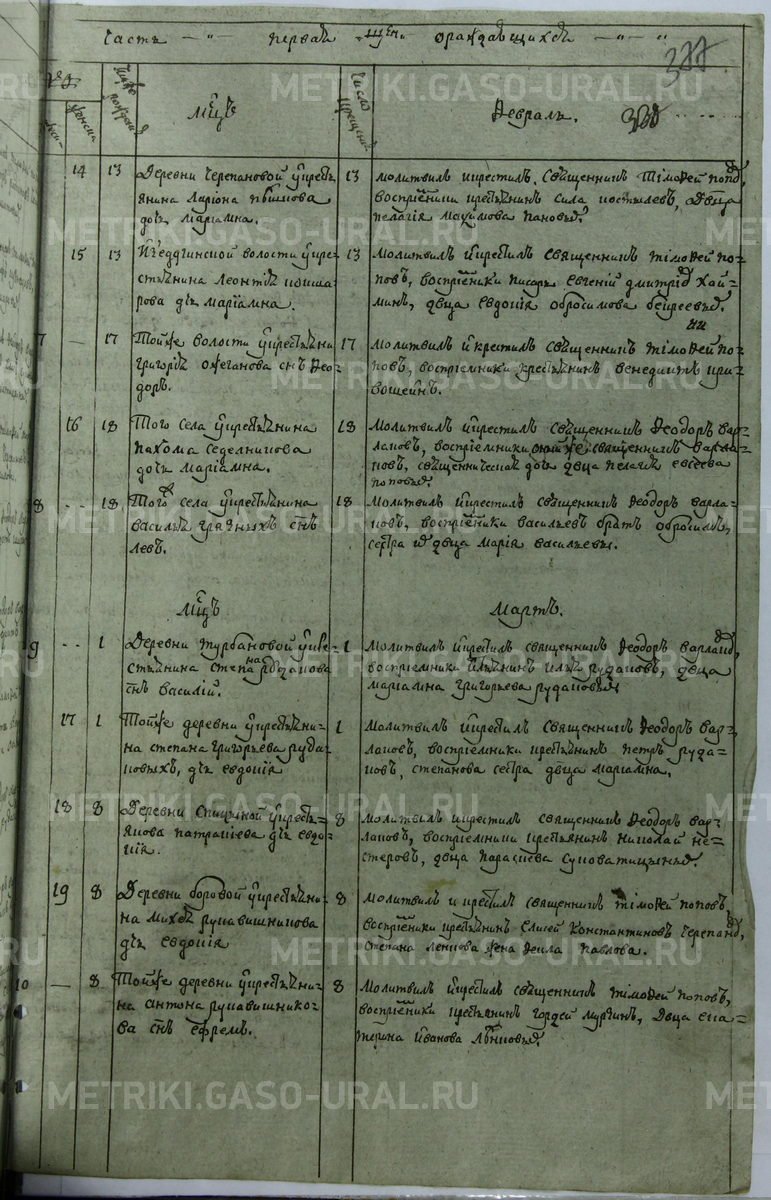 Часть — " — первая — " — о раждающихся — " — "
377.
числа
женска
число рождения
Мцъ
число крещения
Февраль.
14 13 Деревни черепановой у крестьянина Лариона дочь мариамна.
13 молитвилъ и крестилъ священникъ Тимофей попов, восприемники крестьянинъ сила костылевъ, девица пелагія махимова пановыхъ.
15 13 волости у крестьянина Леонтия дчь мариамна.
13 Молитвилъ и крестилъ священникъ тимофей поповъ, восприемники писарь евгений дмитрів хайминъ, двца евдокія обросимова
7 — 17 Тойже волости у крестьянина григорія ожеганова снъ Феодоръ.
17 Молитвилъ и крестилъ священникъ тимофей поповъ, восприемники крестьянинъ венедиктъ кривошеинъ.
16 18 Того села у крестьянина пахома седелникова дочь мариамна.
18 Молитвилъ и крестилъ священникъ Феодоръ варлаковъ, восприемники онъ же священникъ варлаковъ, священническая дочь двца пелагія евсеева поповыхъ.
8 -- 18 Того села у крестьянина василья грязныхъ снъ левъ.
18 Молитвилъ и крестилъ священникъ Феодоръ варлаковъ, восприемники васильевъ братъ обросимъ, сестра двца марія васильевы.
Мцъ
Мартъ.
9 -- 1 Деревни турбановой у крестьянина степана рудакова снъ василій.
1 Молитвилъ и крестилъ священникъ Феодоръ варлаков, восприемники крестьянинъ илья рудаковъ, двца мариамна григорьева рудаковыхъ
17 1 Тойже деревни у крестьянина степана григорьева рудаковыхъ, дчь евдокія
1 Молитвилъ и крестилъ священникъ Феодоръ варлаковъ, восприемники крестьянинъ петръ рудаковъ, степанова сестра двица мариамна.
18 8 Деревни спицыной у крестьянова патракиева дчь евдокія.
8 молитвилъ и крестилъ священникъ Феодоръ варлаковъ, восприемники крестьянинъ николай нестеровъ, двца параскева суковатицыныхъ.
19 8 Деревни боровой у крестьянина михея рукавишникова дчь евдокія
8 молитвилъ и крестилъ священникъ тимофей поповъ, восприемники крестьянинъ елисей константиновъ черепанов, степана ленкова жена неила павлова.
10 — 8 Тойже деревни у крестьянина антона рукавишникова снъ ефремъ.
8 Молитвилъ и крестилъ священникъ тимофей поповъ, восприемники крестьянинъ гордей мурзинъ, двца екатерина иванова
METRIKI.GASO-URAL.RU